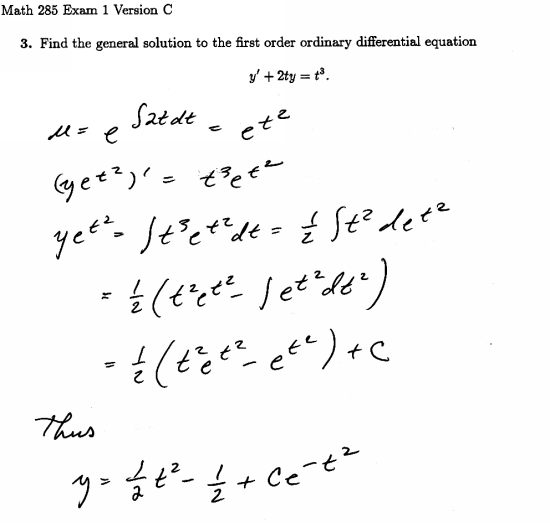 Math 285 Exam 1 Version C
3. Find the general solution to the first order ordinary differential equation
y′ + 2ty = t³.
μ = e^∫2tdt = e^t²
(ye^t²)′ = t³e^t²
ye^t² = ∫t³e^t²dt = ½ ∫t² de^t²
= ½ (t²e^t² - ∫e^t²dt²)
= ½ (t²e^t² - e^t²) + C
Thus
y = ½ t² - ½ + Ce^-t²